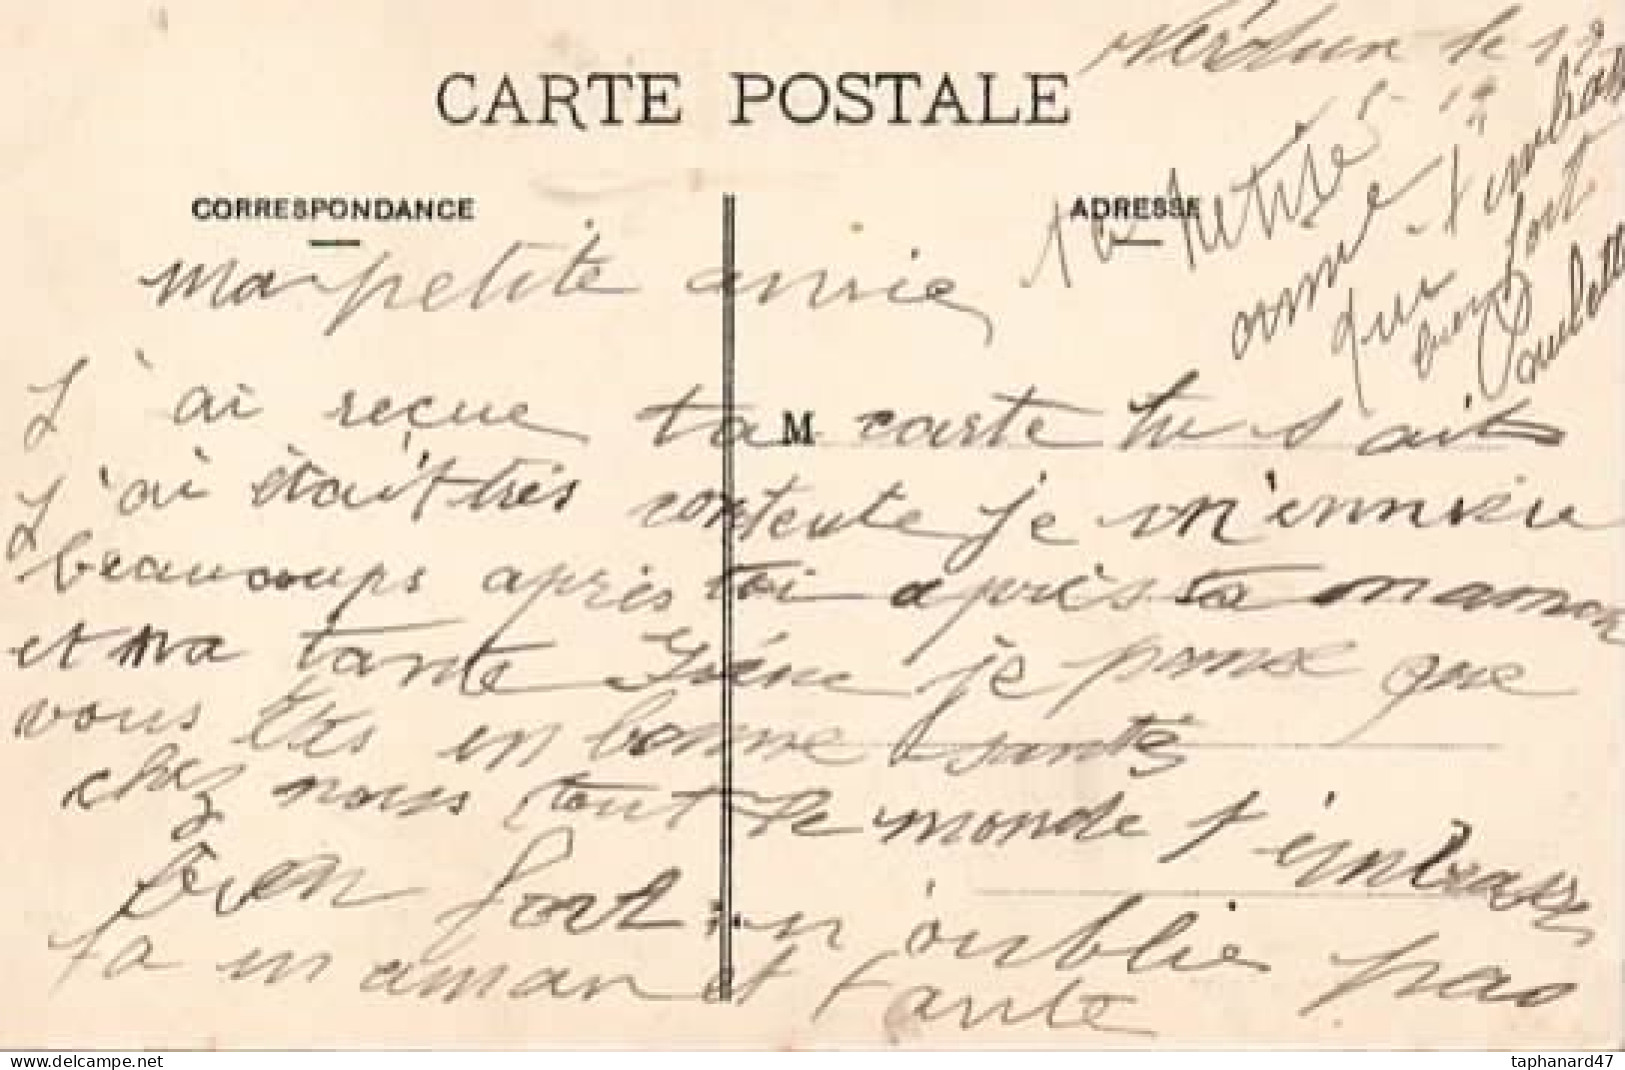 Verdun le 19
CARTE POSTALE
CORRESPONDANCE
ADRESSE
Ma petite amie
J'ai reçue ta M carte tu sait
J'ai était très contente je m'ennuie
beaucoups après toi après ta maman
et ma tante Irène je pense que
vous êtes en bonne santé
chez nous tout le monde t'embrasse
bien fort n'oublie pas
ta maman et tante
ta petite
amie
qui t'embrasse
bien fort
Paulette
taphanard47